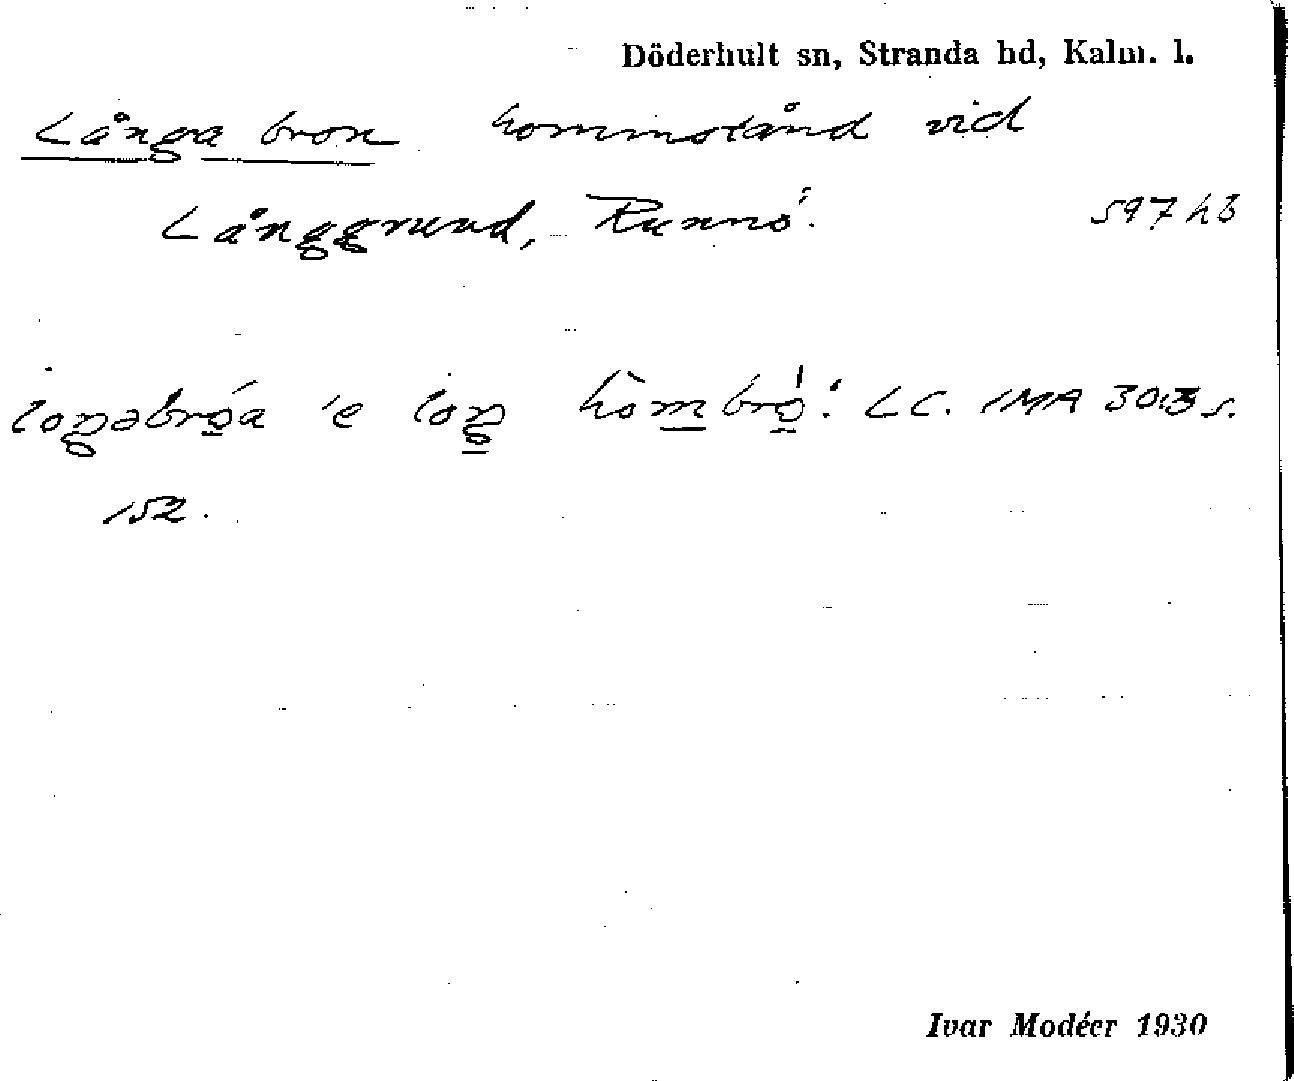 Döderhult sn, Stranda hd, Kalm. l.
Långa bron hommstånd vid
Långgrund, Runnö. 597 h3
LC. IMA 30:3 s.
152.
Ivar Modéer 1930